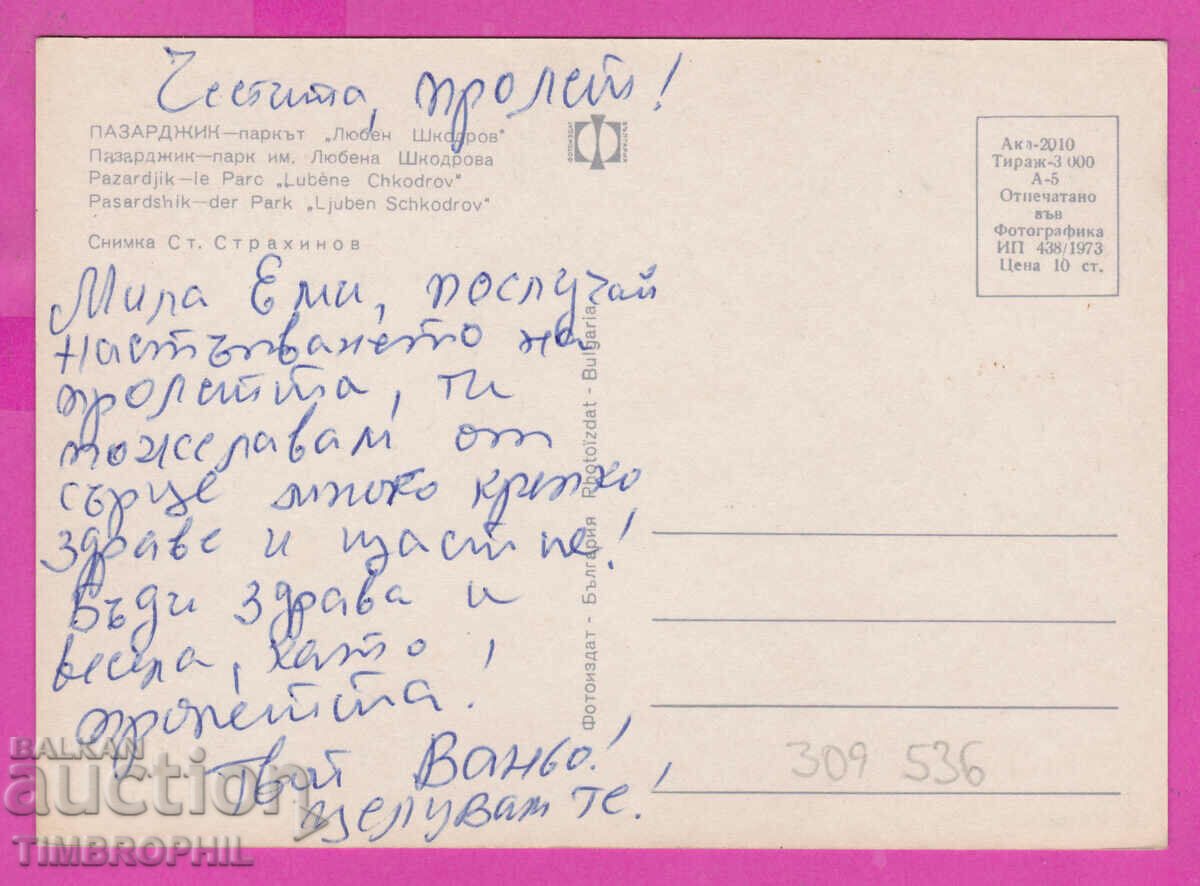 Честита, пролет!
ПАЗАРДЖИК—паркът „Любен Шкодров"
Пазарджик—парк им. Любена Шкодрова
Pazardjik—le Parc „Lubène Chkodrov"
Pasardshik—der Park „Ljuben Schkodrov"
Снимка Ст. Страхинов
ФОТОИЗДАТ
БЪЛГАРИЯ
Акл-2010
Тираж-3 000
А-5
Отпечатано
във
Фотографика
ИП 438/1973
Цена 10 ст.
Мила Еми, послучай
настъпването на
пролетта, ти
пожелавам от
сърце много крепко
здраве и щастие!
Бъди здрава и
весела, като
пролетта.
Твой Ваньо!
целувам те!
Фотоиздат - България Photoïzdat - Bulgaria
309 536
BALKAN
auction
TIMBROPHIL